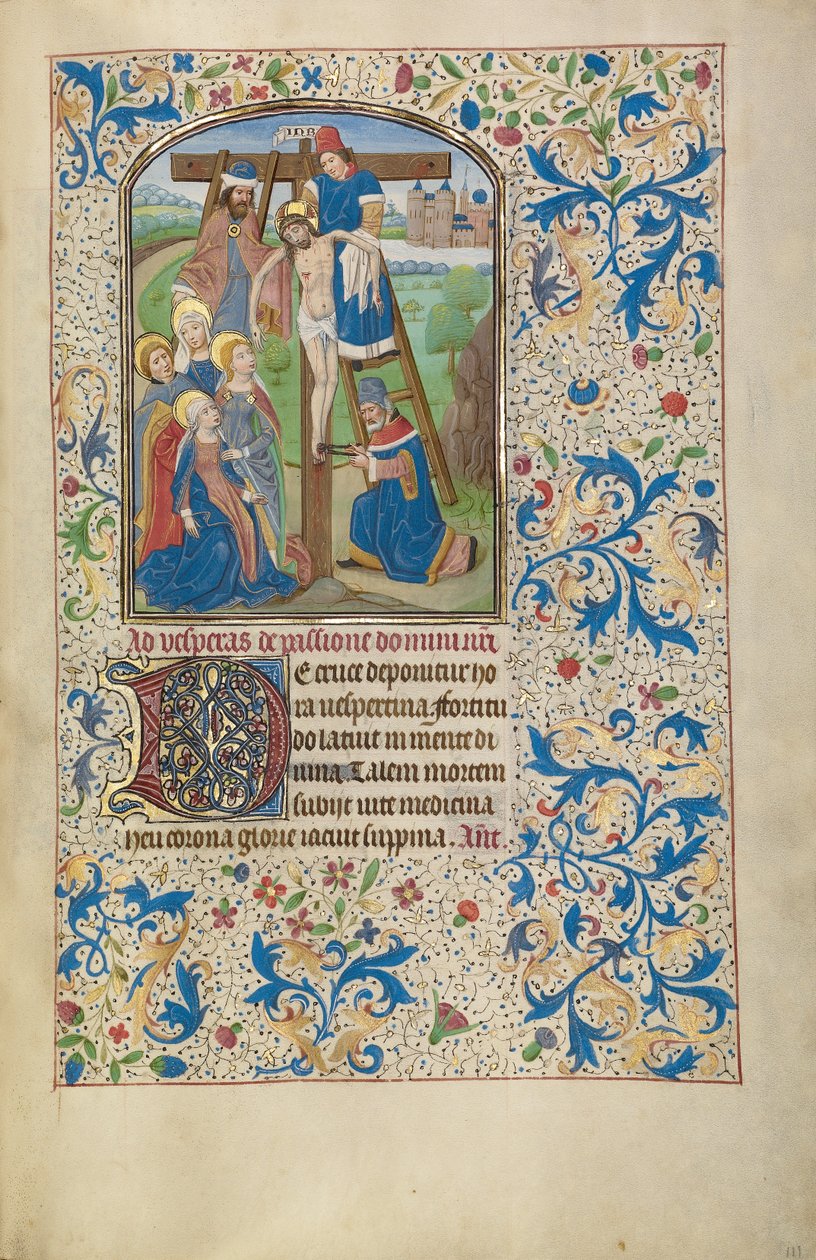 INB
Ad vesperas de passione domini nr̄i
De cruce deponitur ho
ra vespertina ffortitu
do latuit in mente di
uina Talem mortem
subijt uite medicina
heu corona glorie iacuit suppina. Ant.
111